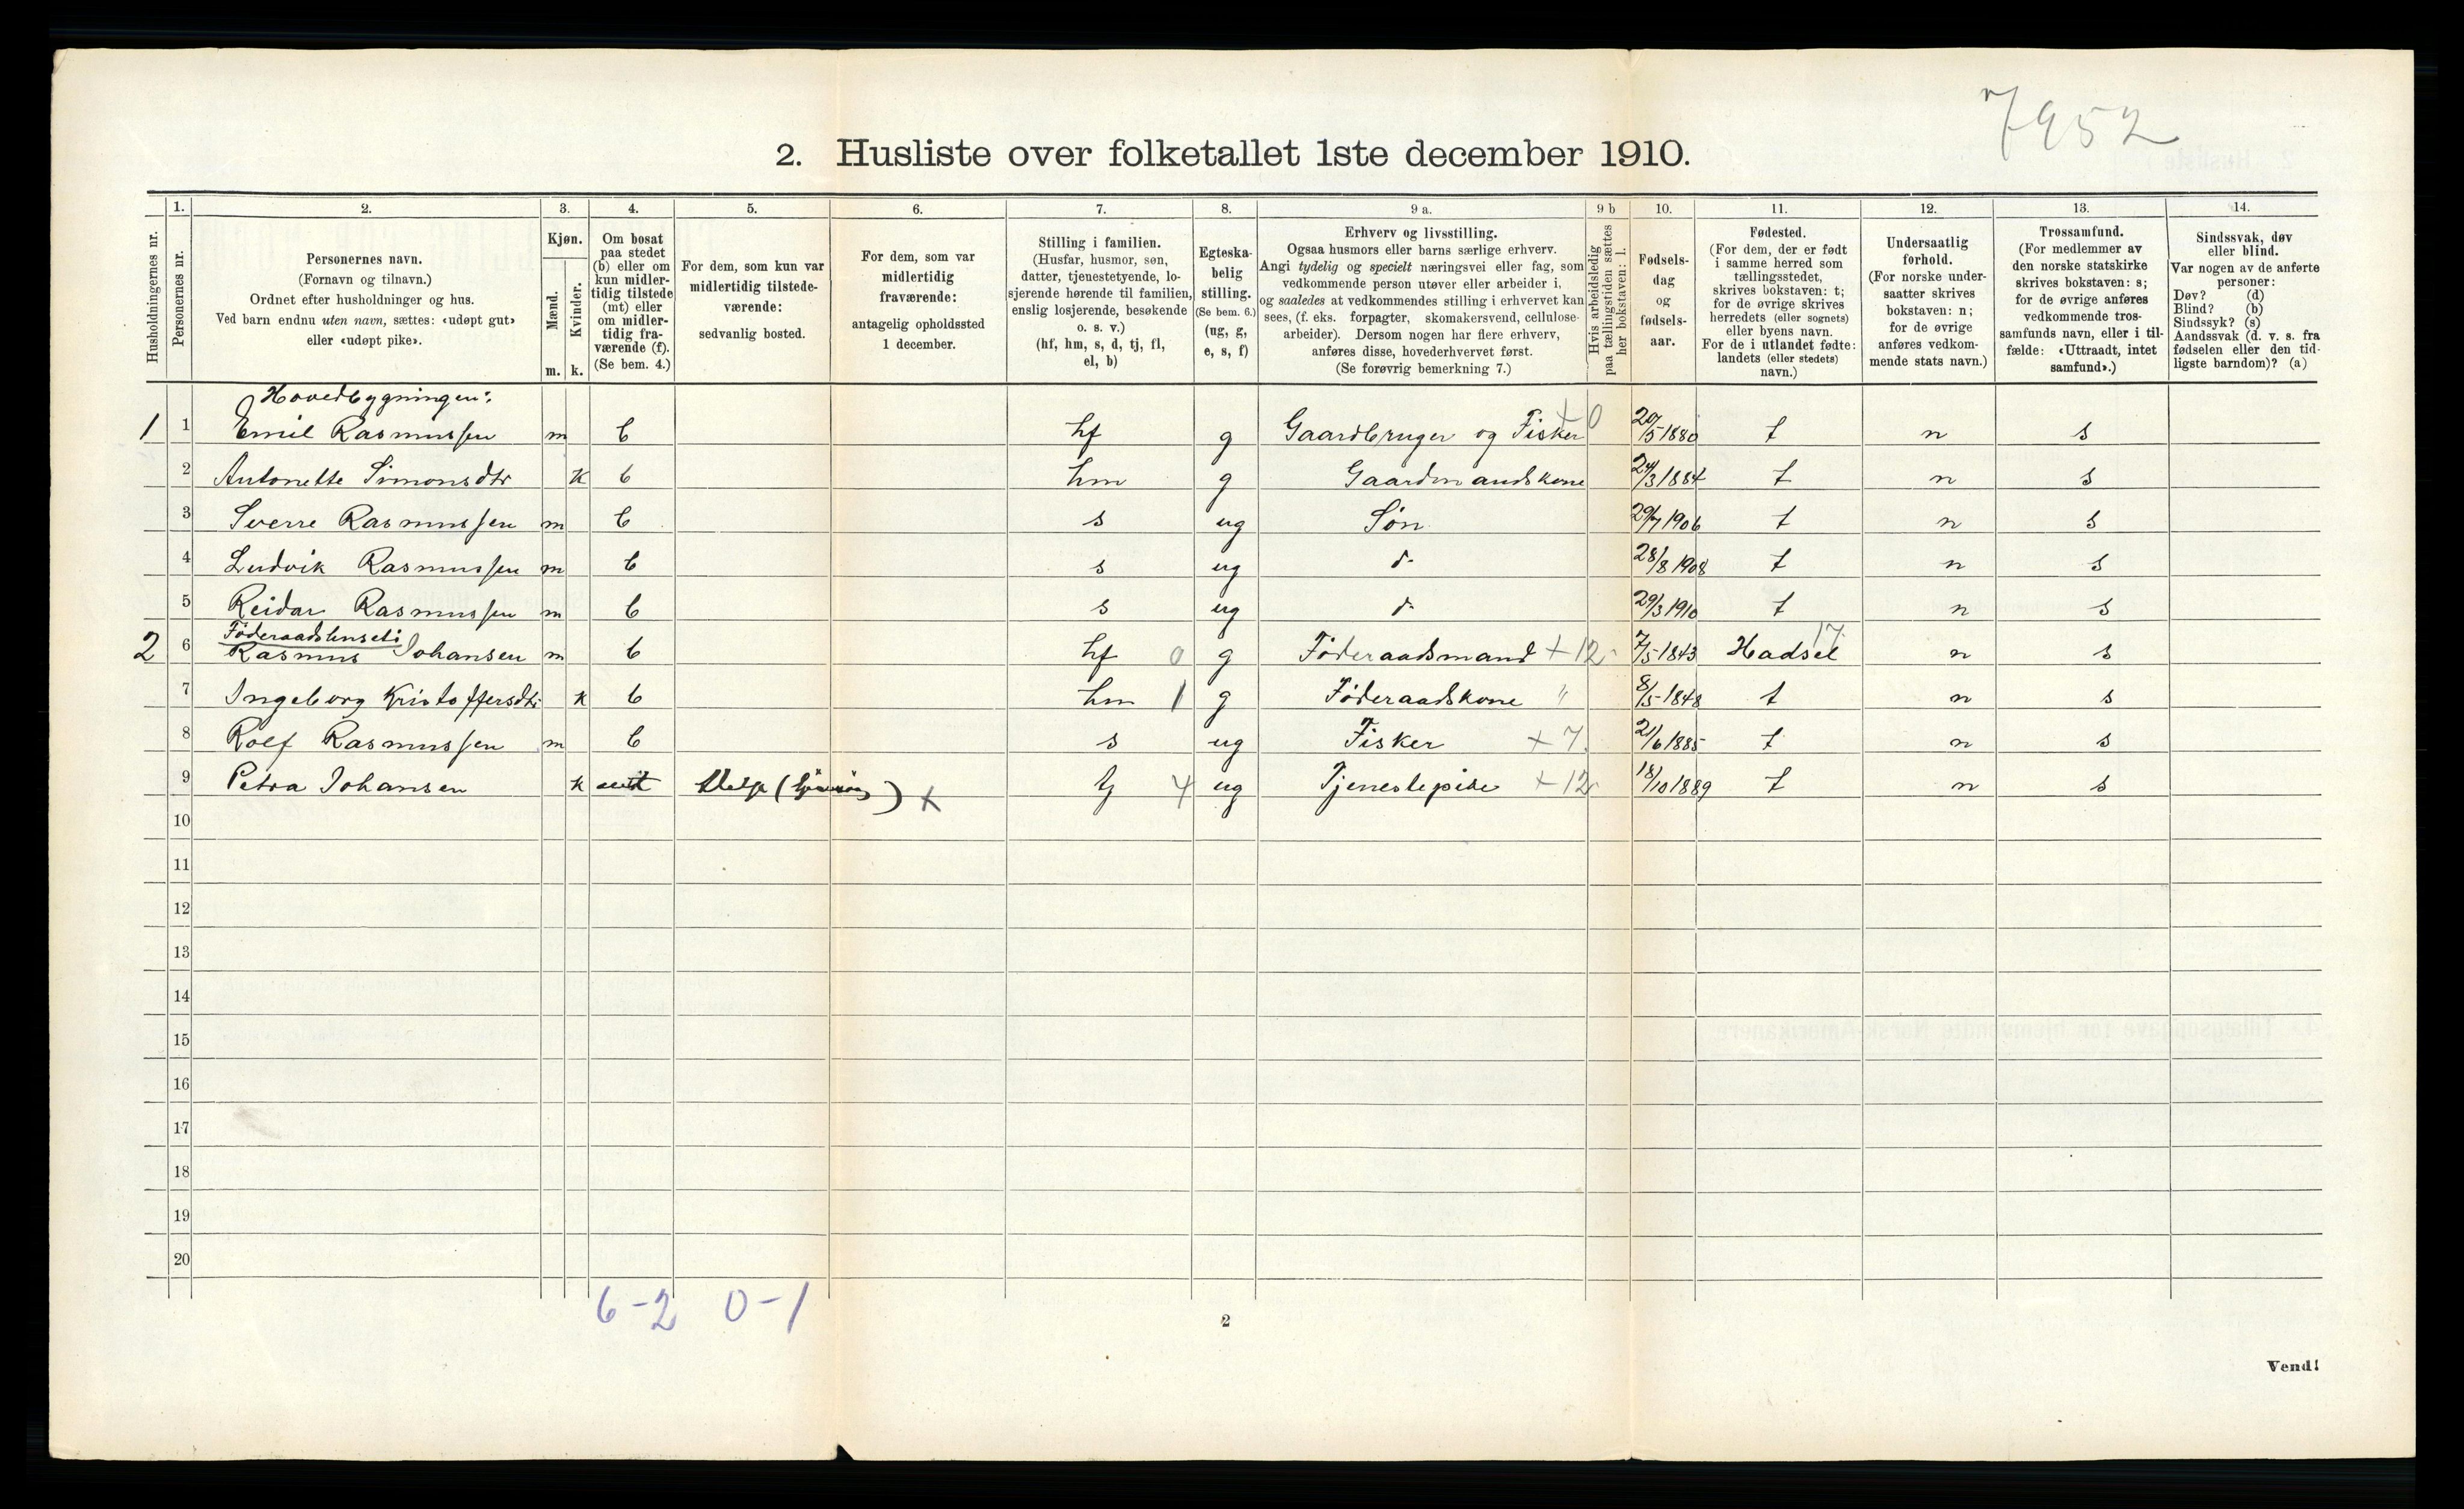 7952
2. Husliste over folketallet 1ste december 1910.
Husholdningernes nr.
1.
Personernes nr.
2.
Personernes navn.
(Fornavn og tilnavn.)
Ordnet efter husholdninger og hus.
Ved barn endnu uten navn, sættes: «udøpt gut»
eller «udøpt pike».
3.
Kjøn.
Mænd.
Kvinder.
m. k.
4.
Om bosat
paa stedet
(b) eller om
kun midler-
tidig tilstede
(mt) eller
om midler-
tidig fra-
værende (f).
(Se bem. 4.)
5.
For dem, som kun var
midlertidig tilstede-
værende:
sedvanlig bosted.
6.
For dem, som var
midlertidig
fraværende:
antagelig opholdssted
1 december.
7.
Stilling i familien.
(Husfar, husmor, søn,
datter, tjenestetyende, lo-
sjerende hørende til familien,
enslig losjerende, besøkende
o. s. v.)
(hf, hm, s, d, tj, fl,
el, b)
8.
Egteska-
belig
stilling.
(Se bem. 6.)
(ug, g,
e, s, f)
9 a.
Erhverv og livsstilling.
Ogsaa husmors eller barns særlige erhverv.
Angi tydelig og specielt næringsvei eller fag, som
vedkommende person utøver eller arbeider i,
og saaledes at vedkommendes stilling i erhvervet kan
sees, (f. eks. forpagter, skomakersvend, cellulose-
arbeider). Dersom nogen har flere erhverv,
anføres disse, hovederhvervet først.
(Se forøvrig bemerkning 7.)
9 b
Hvis arbeidsledig
paa tællingstiden sættes
her bokstaven: l.
10.
Fødsels-
dag
og
fødsels-
aar.
11.
Fødested.
(For dem, der er født
i samme herred som
tællingsstedet,
skrives bokstaven: t;
for de øvrige skrives
herredets (eller sognets)
eller byens navn.
For de i utlandet fødte:
landets (eller stedets)
navn.)
12.
Undersaatlig
forhold.
(For norske under-
saatter skrives
bokstaven: n;
for de øvrige
anføres vedkom-
mende stats navn.)
13.
Trossamfund.
(For medlemmer av
den norske statskirke
skrives bokstaven: s;
for de øvrige anføres
vedkommende tros-
samfunds navn, eller i til-
fælde: «Uttraadt, intet
samfund».)
14.
Sindssvak, døv
eller blind.
Var nogen av de anførte
personer:
Døv? (d)
Blind? (b)
Sindssyk? (s)
Aandssvak (d. v. s. fra
fødselen eller den tid-
ligste barndom)? (a)
Hovedbygningen:
1 1 Emil Rasmussen m b hf g Gaardbruger og Fisker +0 20/5 1880 t n s
2 Antonette Simonsdtr k b hm g Gaardmandskone 24/3 1884 t n s
3 Sverre Rasmussen m b s ug Søn 29/7 1906 t n s
4 Ludvik Rasmussen m b s ug d- 28/8 1908 t n s
5 Reidar Rasmussen m b s ug d- 29/3 1910 t n s
Føderaadshuset:
2 6 Rasmus Johansen m b hf 0 g Føderaadsmand +12- 7/5 1843 Hadsel 17. n s
7 Ingeborg Kristoffersdtr k b hm 1 g Føderaadskone " 8/5-1848 t n s
8 Rolf Rasmussen m b s ug Fisker +7. 21/6 1885 t n s
9 Petra Johansen k mt ) x tj 4 ug Tjenestepike +12- 18/10 1889 t n s
10
11
12
13
14
15
16
17
18
19
20
6-2 0-1
2
Vend!